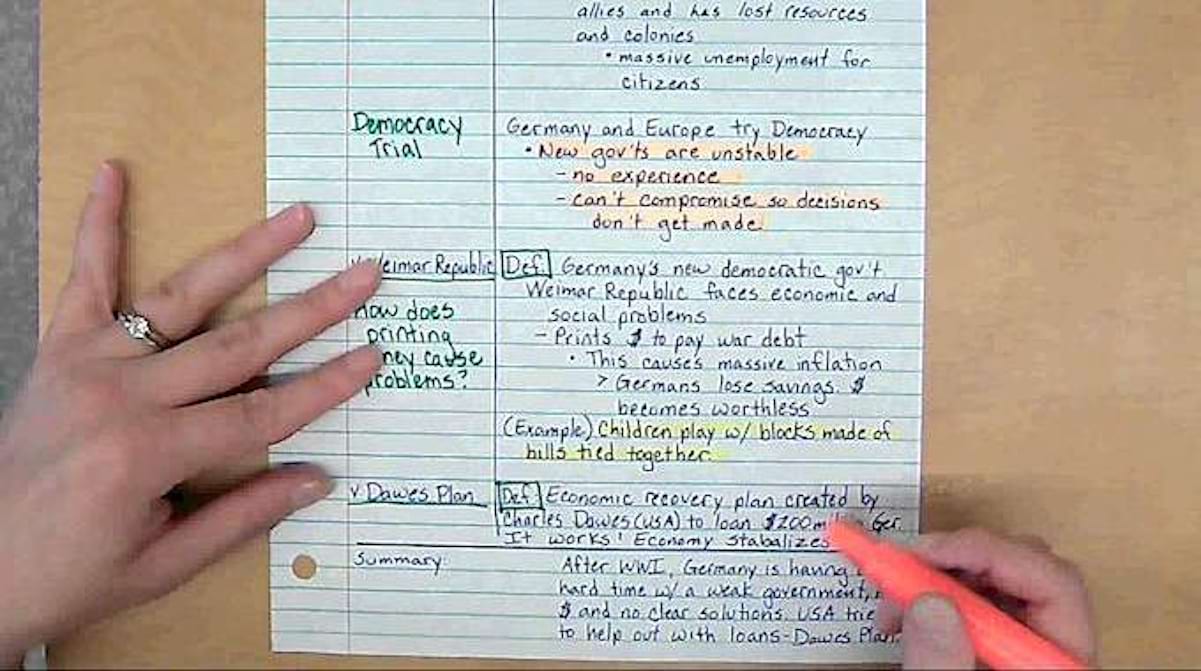 allies and has lost resources
and colonies
• massive unemployment for
citizens
Democracy
Trial
Germany and Europe try Democracy
• New gov'ts are unstable
- no experience
- can't compromise so decisions
don't get made.
Weimar Republic
Def. Germany's new democratic gov't.
Weimar Republic faces economic and
social problems
- Prints $ to pay war debt
• This causes massive inflation
> Germans lose savings. $
becomes worthless
How does
printing
cause
problems?
(Example) Children play w/ blocks made of
bills tied together.
v Dawes Plan
Def. Economic recovery plan created by
Charles Dawes (USA) to loan $200 Ger.
It works! Economy stabalizes
Summary:
After WWI, Germany is having
hard time w/ a weak government,
$ and no clear solutions. USA
to help out with loans - Dawes Plan.